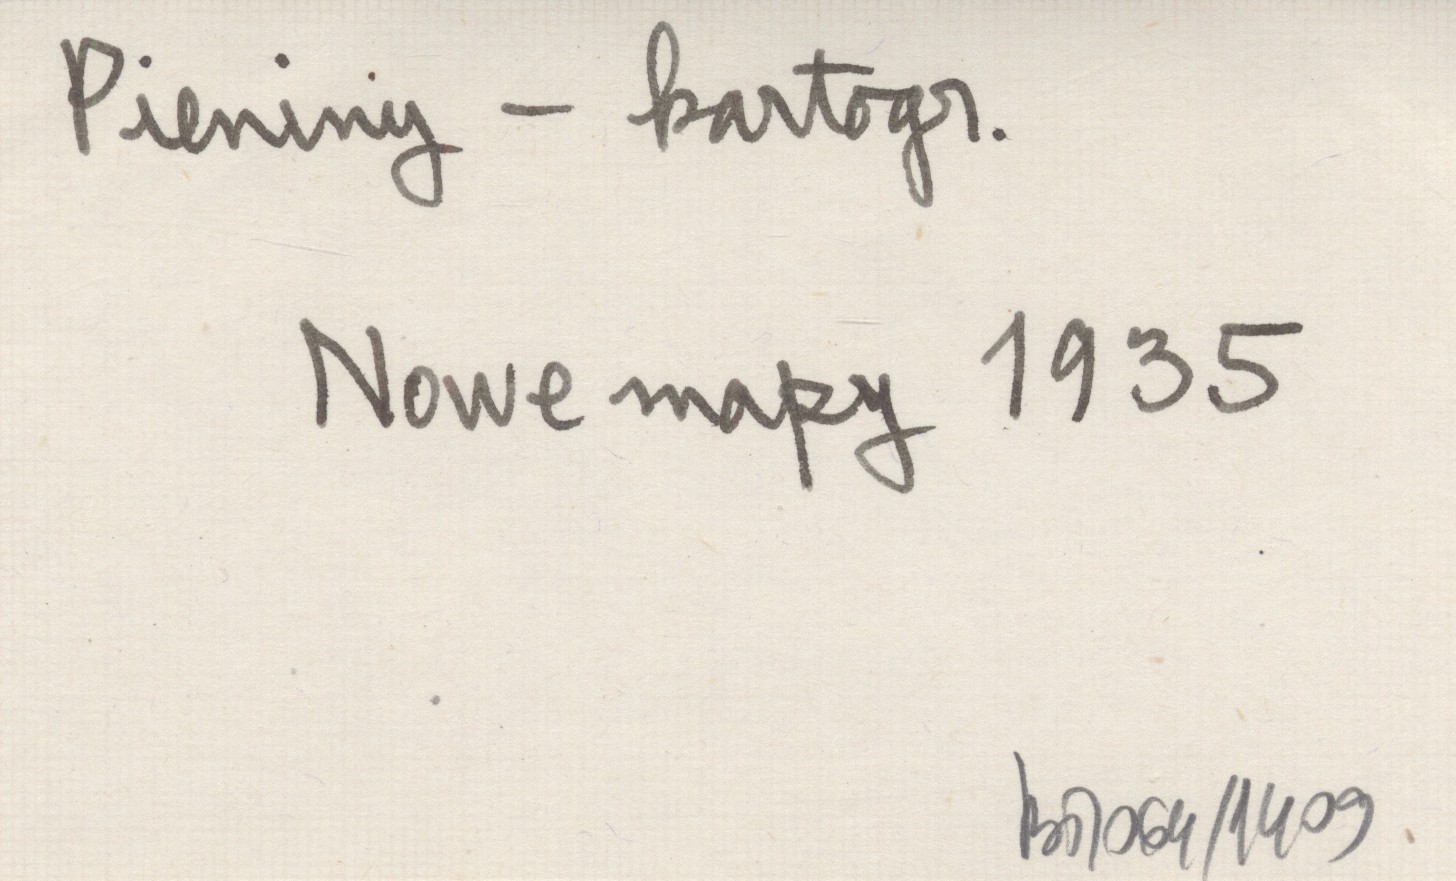 Pieniny – kartogr.
Nowe mapy 1935
/1409